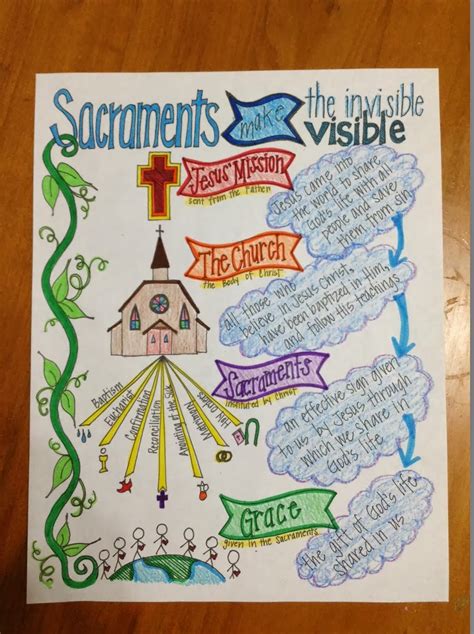 Sacraments make the invisible
visible
Jesus' Mission
sent from the Father
Jesus came into
the world to share
God's life with all
people and save
them from sin
The Church
the Body of Christ
all those who
believe in Jesus Christ,
have been baptized in Him,
and follow His teachings
Sacraments
instituted by Christ
an effective sign given
to us by Jesus through
which we share in
God's life
Baptism
Eucharist
Confirmation
Reconciliation
Anointing of the Sick
Matrimony
Holy Orders
Grace
given in the Sacraments
the gift of God's life
shared in us